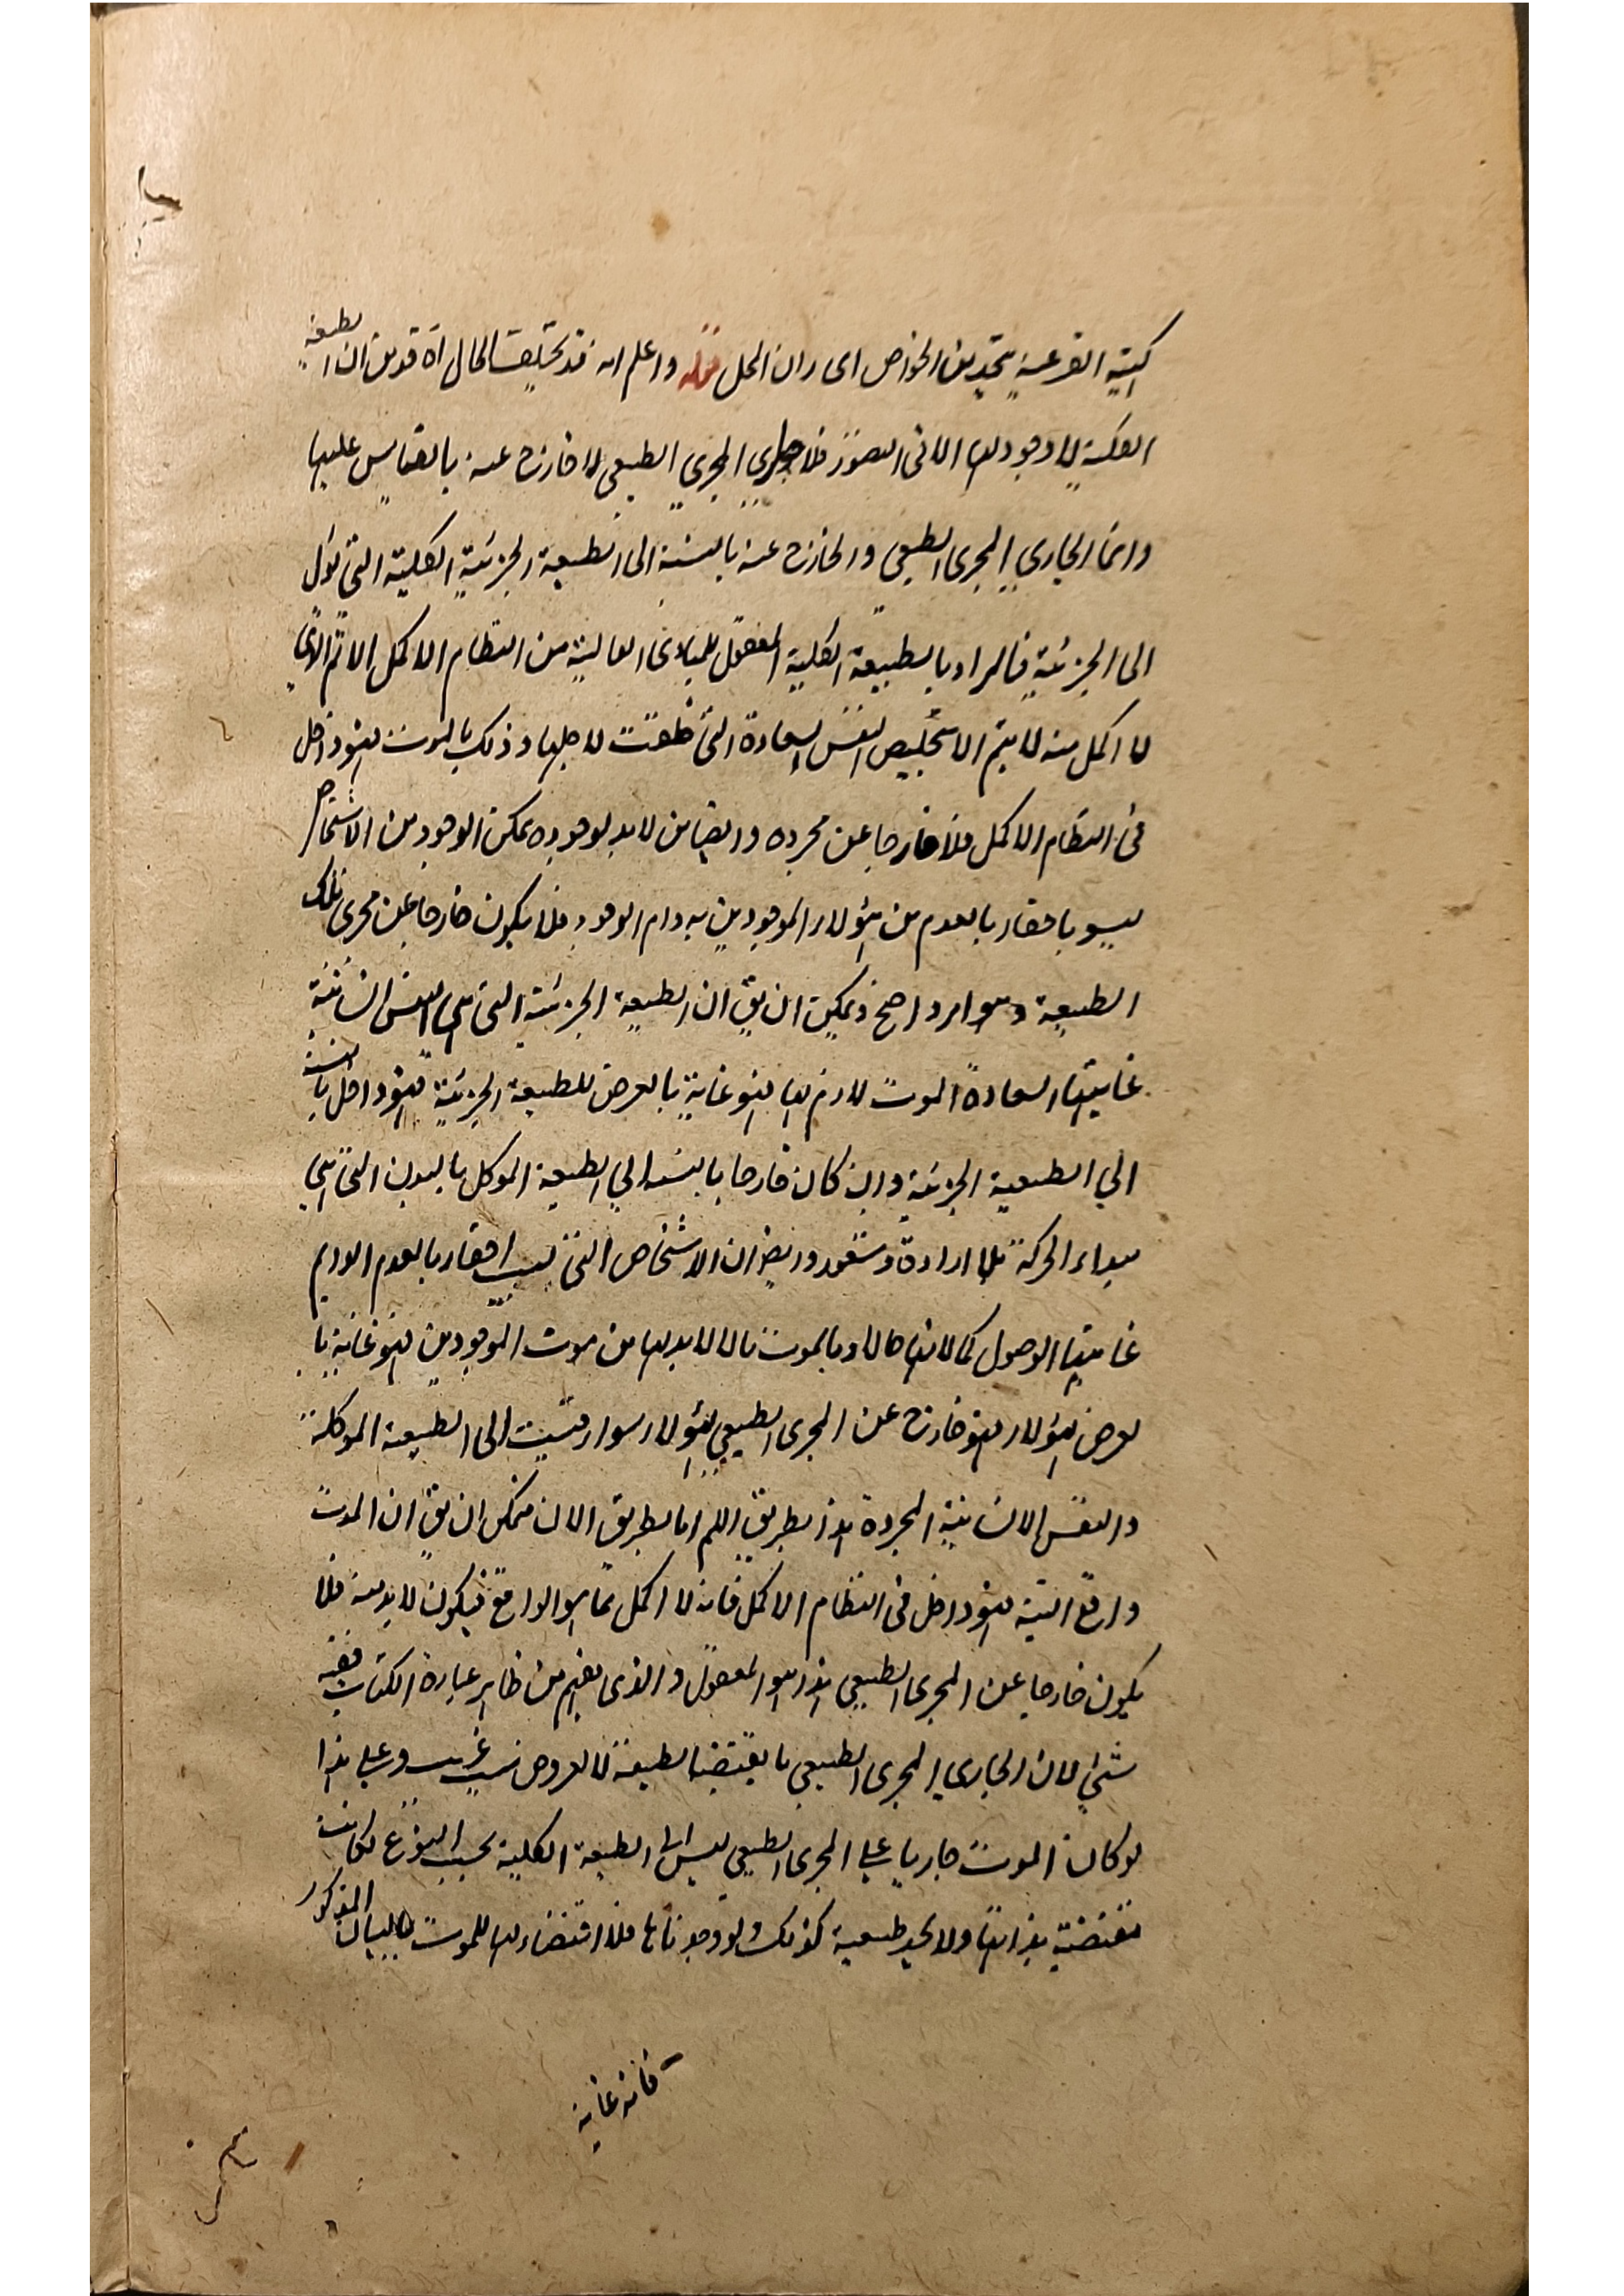 كيتيه القرعية يتحد من الخواص اى ران المحل قوله واعلم انه قد تختلف الحال اه قد من ان الطبيعة
الكلية لا وجود لها الا فى التصور فلا جارى المجرى الطبيعى لا خارج عنه بالقياس عليها
وانما الجارى المجرى الطبيعى والخارج عنه بالنسبة الى الطبيعة الجزئية الكلية التى تؤل
الى الجزئية فالمراد بالطبيعة الكلية المعقول للمبادى العالية من النظام الاكمل الاتم الذى
لا اكمل منه لا يتم الا بتخليص النفس لسعادة التى خلقت لاجلها وذلك بالموت فهو داخل
فى النظام الاكمل فلا خارجا عن مجراه وايضا من لا بد لوجوده يمكن الوجود من الاشخاص
ليسو باحقاء بالعدم من هؤلاء الموجودين بدوام الوجود فلا يكون خارجا عن مجرى تلك
الطبيعة وهو امر واضح ويمكن ان يق ان الطبيعة الجزئية التى هى النفس انسانية
غايتها السعادة الموت لازم لها فهو غاية بالعرض للطبيعة الجزئية فهو داخل بالنسبة
الى الطبيعية الجزئية وان كان خارجا بالنسبه الى الطبيعة الموكل بالبدن التى هى
مبداء الحركة بلا ارادة وشعور وايضا ان الاشخاص التى ليست احقاء بالعدم الدايم
غايتها الوصول كمالاتها حالا وبالموت مالا لابد لها من موت الموجودين فهو غاية با
لعرض لهؤلاء فهو خارج عن المجرى الطبيعى لهؤلاء سواء قيست الى الطبيعة الموكلة
والنفس الانسانية المجردة هذا بطريق اللم اما بطريق الان فيمكن ان يق ان الموت
واقع البتة فهو داخل فى النظام الاكمل فانه لا اكمل مما هو الواقع فيكون لابد منه فلا
يكون خارجا عن المجرى الطبيعى هذا هو المعقول والذى يفهم من ظاهر عبارة الكتاب ففيه
شئ لان الجارى المجرى الطبيعى ما يقتضيها الطبيعة لا لعروض سبب غريب وعلى هذا
لو كان الموت جاريا على المجرى الطبيعى ليس الى الطبيعة الكلية بحسب النوع لكانت
مقتضية بذاتها ولا نجد طبيعية كذلك ولو وجدناها فلا اقتضاء لها للموت بالبيان المذكور
فانه غاية